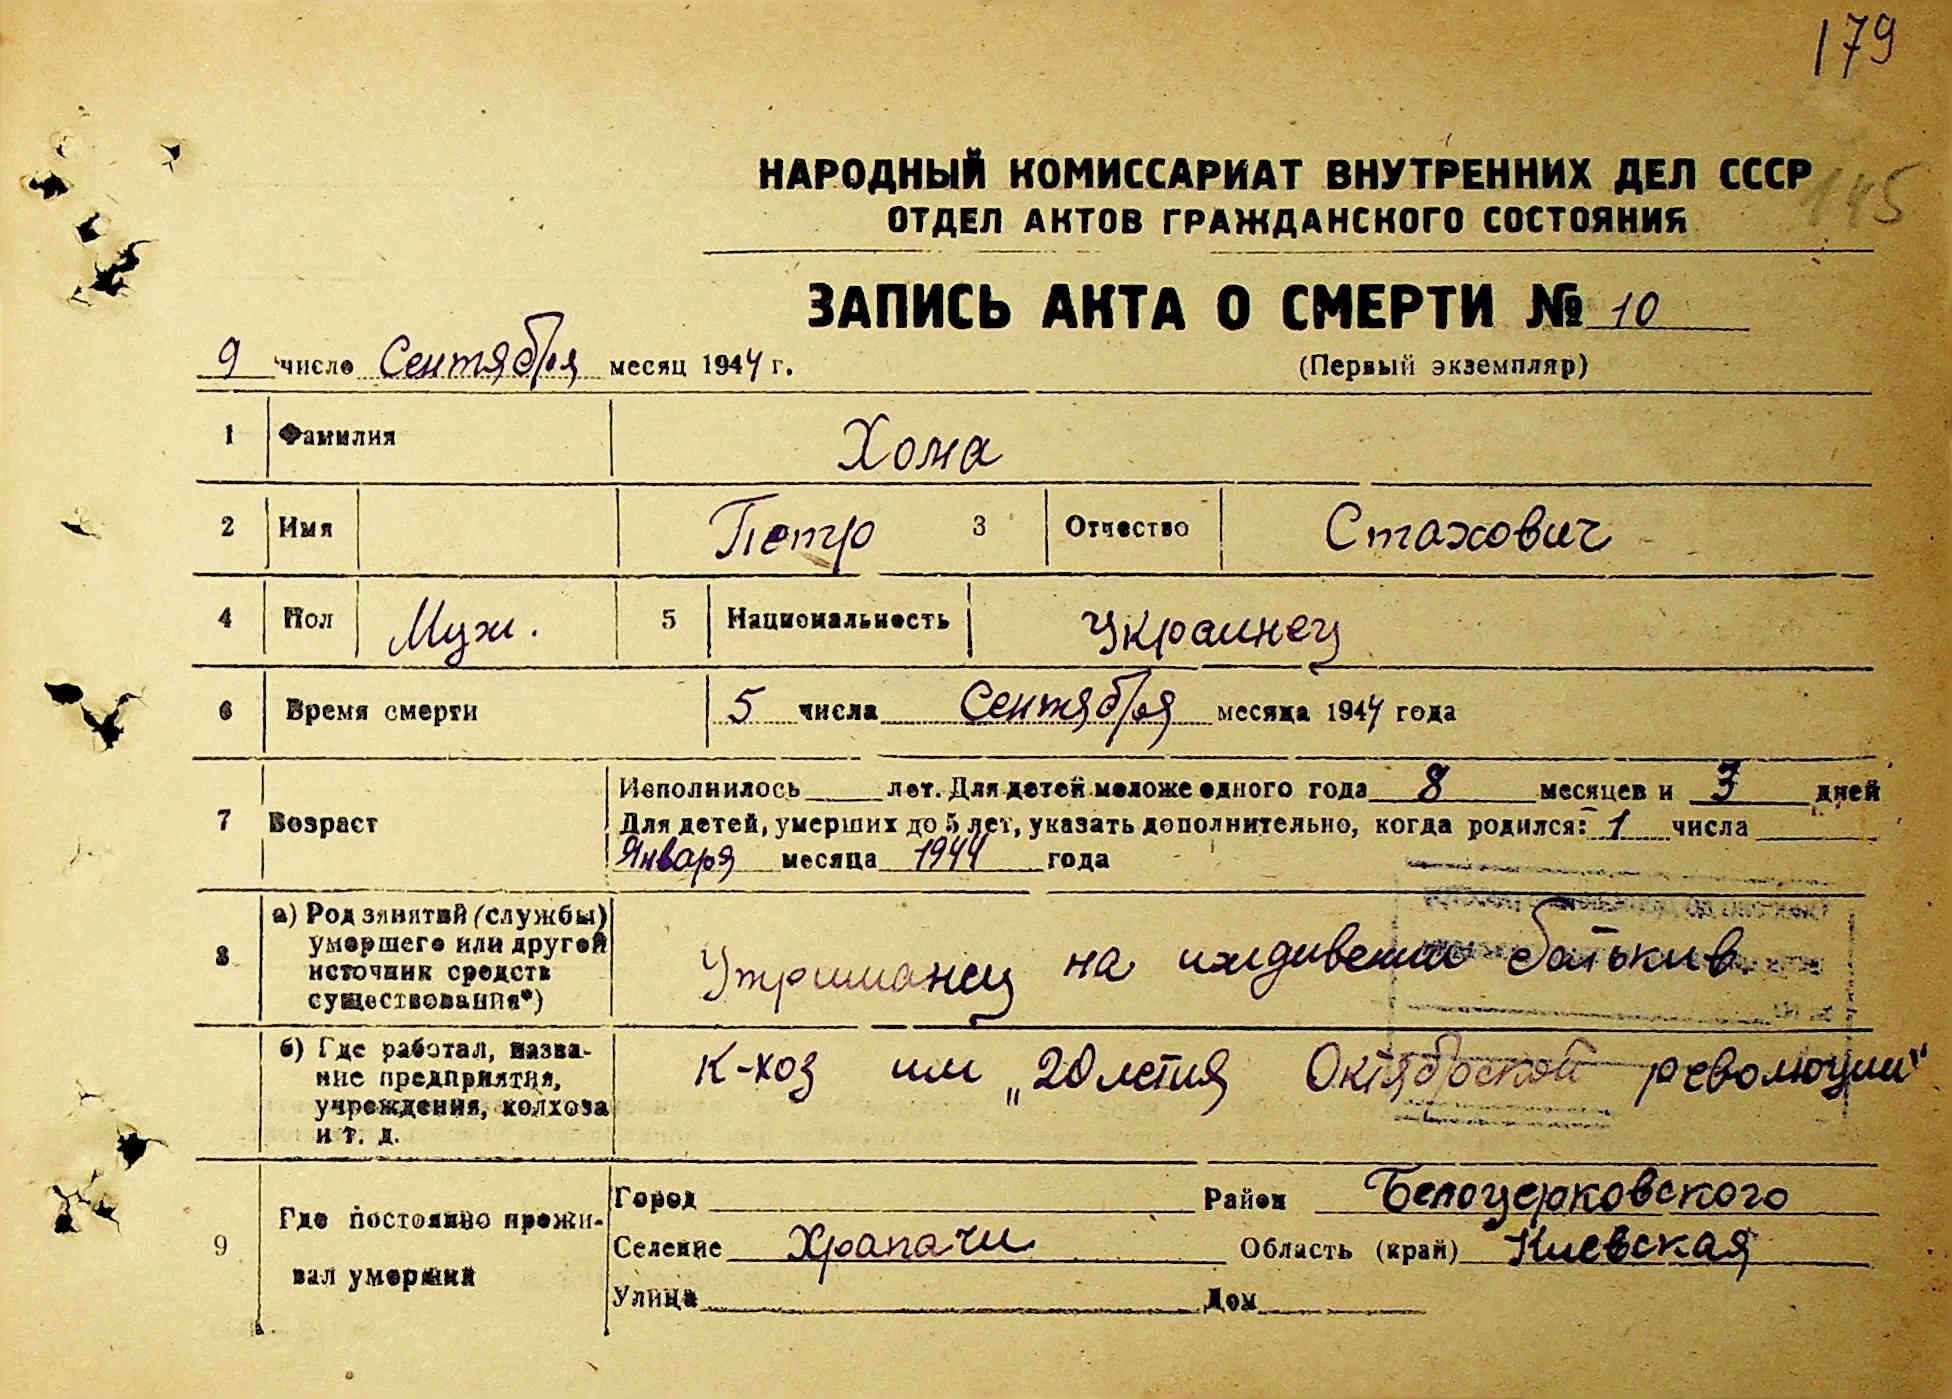 179
145
НАРОДНЫЙ КОМИССАРИАТ ВНУТРЕННИХ ДЕЛ СССР
ОТДЕЛ АКТОВ ГРАЖДАНСКОГО СОСТОЯНИЯ
ЗАПИСЬ АКТА О СМЕРТИ № 10
9 число Сентября месяц 1944 г. (Первый экземпляр)
1 Фамилия Хома
2 Имя Петр 3 Отчество Стахович
4 Пол Муж. 5 Национальность Украинец
6 Время смерти 5 числа Сентября месяца 1944 года
7 Возраст Исполнилось лет. Для детей моложе одного года 8 месяцев и 3 дней
Для детей, умерших до 5 лет, указать дополнительно, когда родился: 1 числа
Января месяца 1944 года
8 а) Род занятий (службы) умершего или другой источник средств существования*) Утриманец на иждивении батькив
б) Где работал, название предприятия, учреждения, колхоза и т. д. К-хоз им „20 летия Октябрской революции"
9 Где постоянно проживал умерший Город Район Белоцерковского
Селение Храпачи Область (край) Киевская
Улица Дом